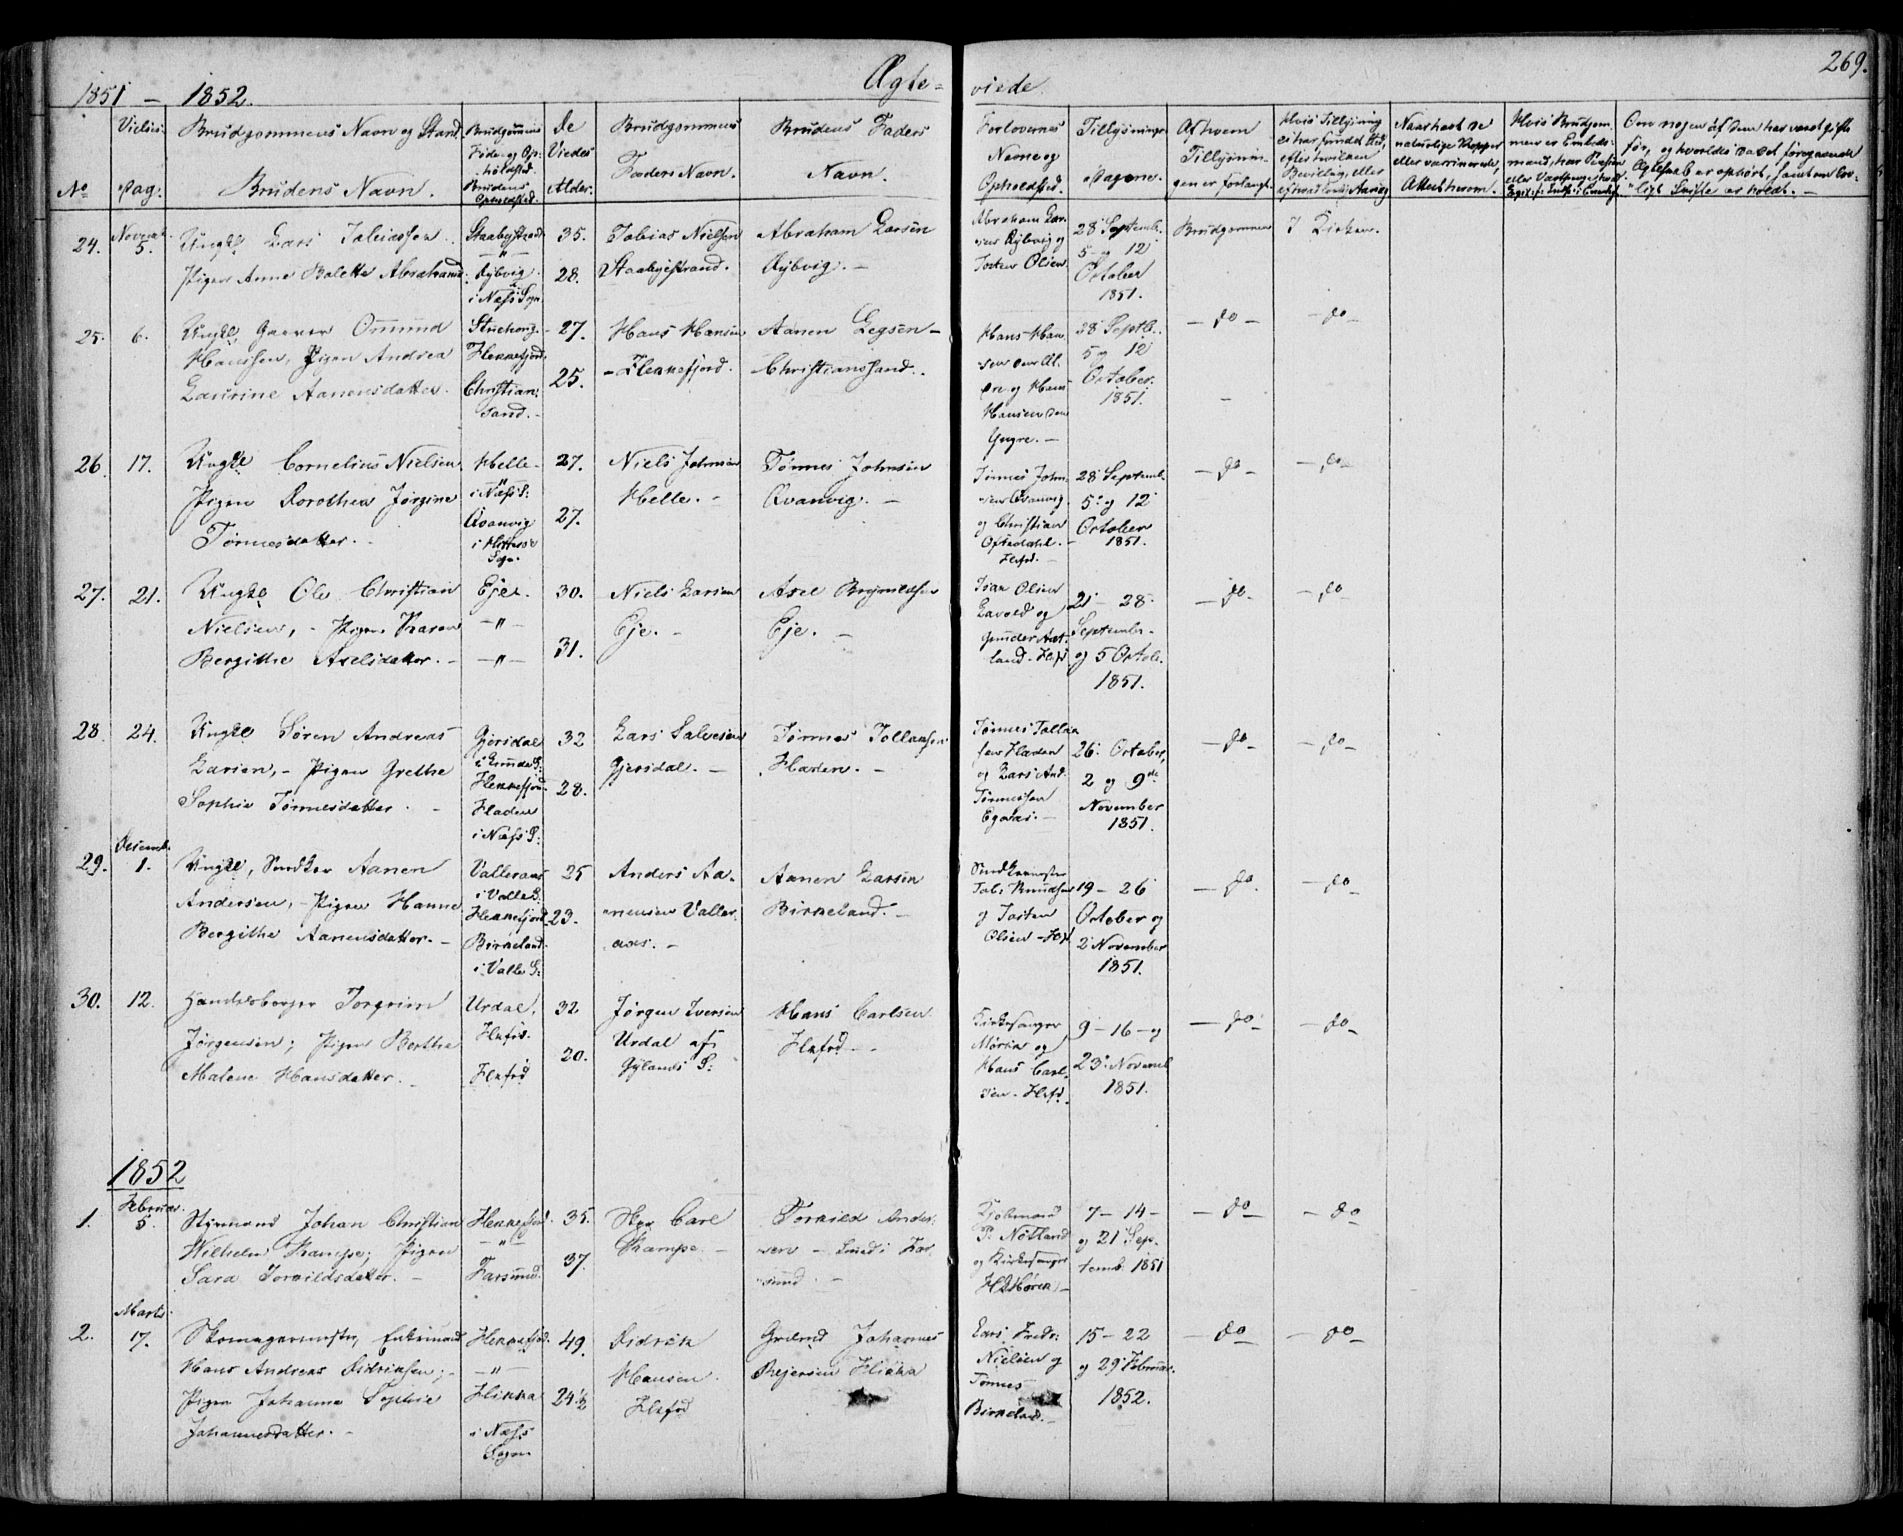 269.
1851 – 1852.
Ægte- viede.
No
Vielses-
Dag.
Brudgommens Navn og Stand.
Brudens Navn.
Brudgommens
Føde- og Op-
holdsted.
Brudens
Opholdsted.
De
Viedes
Alder.
Brudgommens
Faders Navn.
Brudens Faders
Navn.
Forlovernes
Navne og
Opholdsted.
Tillysnings-
Dagene.
Af hvem
Tillysnin-
gen er forlangt.
Hvis Tillysning
ei har fundet Sted,
efter hvilken
Bevilling, eller
Naar havt de
naturlige Kopper
eller vaccinerede,
Attest herom.
Hvis Brudgom-
men er Embeds-
mand, har
Om nogen af dem har været gifte
før, og hvorledes da det foregaaende
Ægteskab er ophørt, samt om lov-
ligt Skifte er holdt. –
24.
Novemb.
5.
Ungkl Lars Tobiassen
Pigen Anne Malette Abrahamsd.
Staabystrand
– " –
Rybvig
i Næss Sogn
35.
28.
Tobias Nielsen
Staabystrand.
Abraham Larsen
Rybvig. –
Abraham Lar-
sen Rybvig og
Josten Olsen
28 Septemb.
5 og 12
October
1851.
Brudgommen
I Kirken.
25.
6.
Ungkl. Garver Omund
Hanssen, Pigen Andrea
Laurine Aanensdatter.
Flekkefjord.
Christian-
sand. –
27.
25.
Hans Hansen
– Flekkefjord.
Aanen Legsen –
Christianssand.
Hans Han-
sen den Æl-
dre og Hans
Hansen den
Yngre. –
28 Septb.
5 og 12
October.
1851.
– do –
– do –
26
17.
Ungkl Cornelius Nielsen
Pigen Dorothea Jørgine
Tønnesdatter. –
Helle –
i Næss S:
Qvanvig
i Hitterø
Sogn.
27.
27.
Niels Johnsen
Helle. –
Tønnes Johnsen
Qvanvig. –
Tønnes John-
sen Qvanvig
og Christian
Oftedahl. –
Flkfd. –
28 Septemb.
5 og 12
October
1851.
– do –
– do –
27.
21.
Ungkl Ole Christian
Nielsen, – Pigen Karen
Bergithe Axelsdatter. –
Eje.
– " –
– " –
30.
31.
Niels Larsen
Eje. –
Axel Brynildsen
Eje. –
Ivar Olsen
Lavold og
Gunder Aat-
land – Flkfd
21 – 28
September –
og 5 Octob.
1851.
– do –
– do –
28.
24.
Ungkl Søren Andreas
Larsen, – Pigen Grethe
Sophie Tønnesdatter. –
Gjersdal
i Lunde S:
Flekkefjord
Fladen
i Næss S:
32
28.
Lars Salvesen
Gjersdal. –
Tønnes Tollaksen
Fladen. –
Tønnes Tollak-
sen Fladen
og Lars And.
Tønnessen
Egaas. –
26 October,
2 og 9de
November
1851.
– do –
– do –
29.
Decemb.
1.
Ungkl, Snedker Aanen
Andersen, – Pigen Hanne
Bergithe Aanensdatter. –
Valleraas
i Valle S.
Flekkefjord
Birkeland
i Valle S:
25
23.
Anders Aa-
nensen Valler-
aas. –
Aanen Larsen
Birkeland. –
Snedkermester
Tob: Knudsen
og Josten
Olsen – Flkf
19 – 26
October og
2 November
1851.
– do –
– do –
30.
12.
Handelsborger Torgrim
Jørgensen; Pigen Berthe
Malene Hansdatter. –
Urdal,
Flkfd.
Flkfd
32
20.
Jørgen Iversen
Urdal af
Gylands S:
Hans Carlsen
Flkfd –
Kirkesanger
Mørch og
Hans Carl-
sen – Flkfd.
9 – 16 – og
23 Novemb
1851.
– do –
– do –
1852
1.
Februar.
5.
Styrmand Johan Christian
Wilhelm Kampe; Pigen
Sara Torkildsdatter. –
Flekkefjord.
– " –
Farsund.
35.
37.
Carl
Kampe. –
Torkild Ander-
sen – Lund i Far-
sund. –
Kjøbmand
P. Nøtland
og Kirkesanger
7 – 14 –
og 21 Sep-
temb. 1851
– do –
– do –
2.
Marts
17.
Skomagermester, Enkemand
Hans Andreas Didriksen; –
Pigen Johanne Sophie
Johannesdatter. –
Flekkefjord.
– " –
Flikka
i Næss
Sogn
49.
24½
Didrik
Hansen.
Flkfd
Grlmd Johannes
Rejersen Flikka
Lars Fredr:
Nielsen og
Tønnes
Birkeland. –
15 – 22
og 29 Februar.
1852.
– do –
– do –